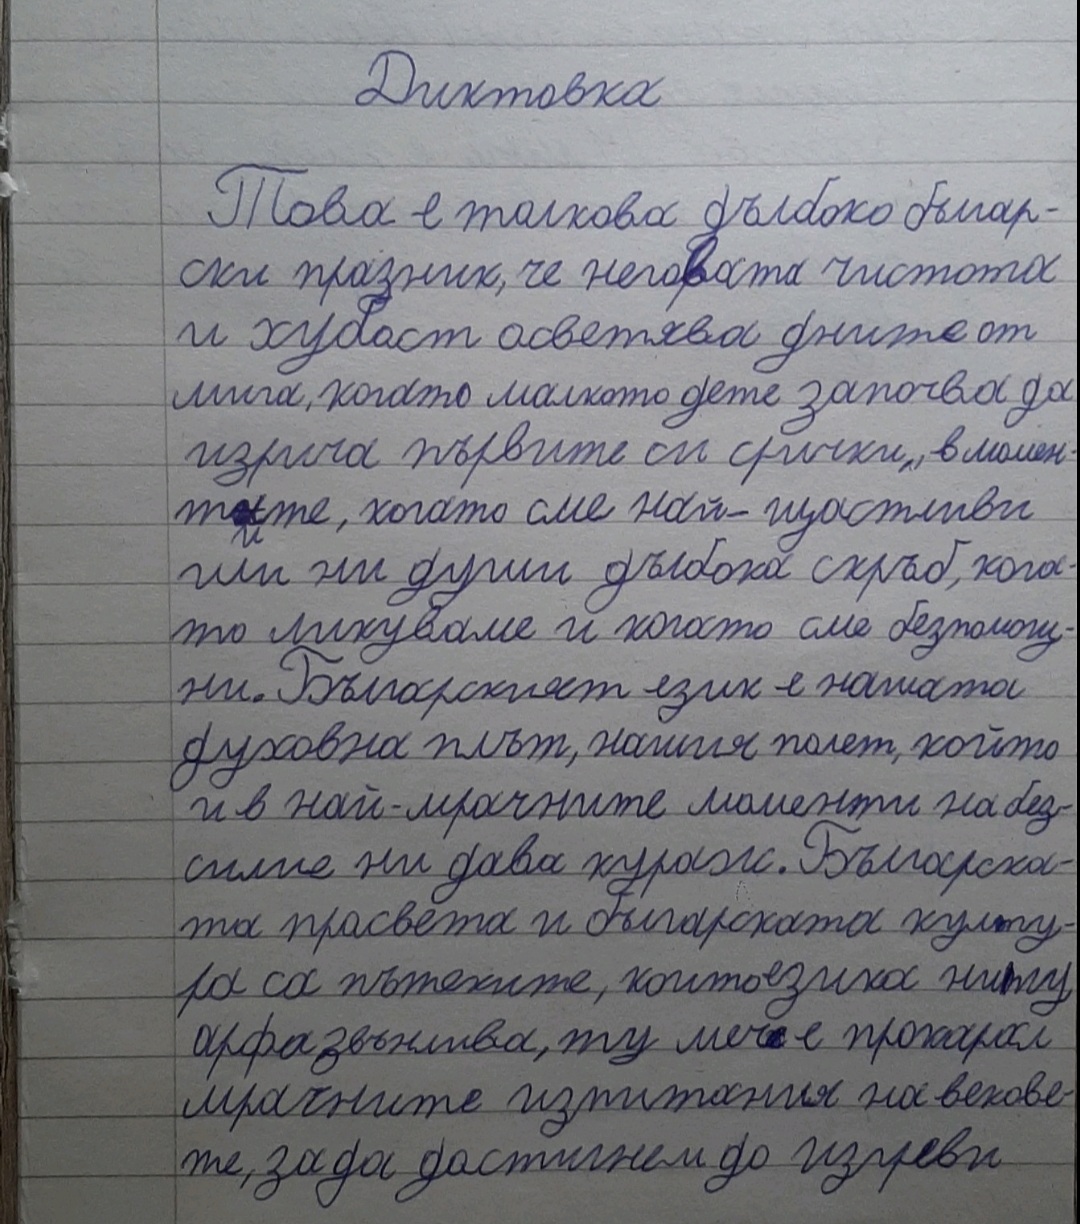 Диктовка
Това е толкова дълбоко българ-
ски празник, че неговата чистота
и хубост осветява дните от
мига, когато малкото дете започва да
изрича първите си срички, в момен-
тите, когато сме най-щастливи
или ни души дълбока скръб, кога-
то ликуваме и когато сме безпомощ-
ни. Българският език е нашата
духовна плът, нашия полет, който
и в най-мрачните моменти на без-
силие ни дава кураж. Българска-
та просвета и българската култу-
ра са пътеките, които езика ни ту
арфа звънлива, ту меч е прокарал
мрачните изпитания на векове-
те, за да достигнем до изгреви